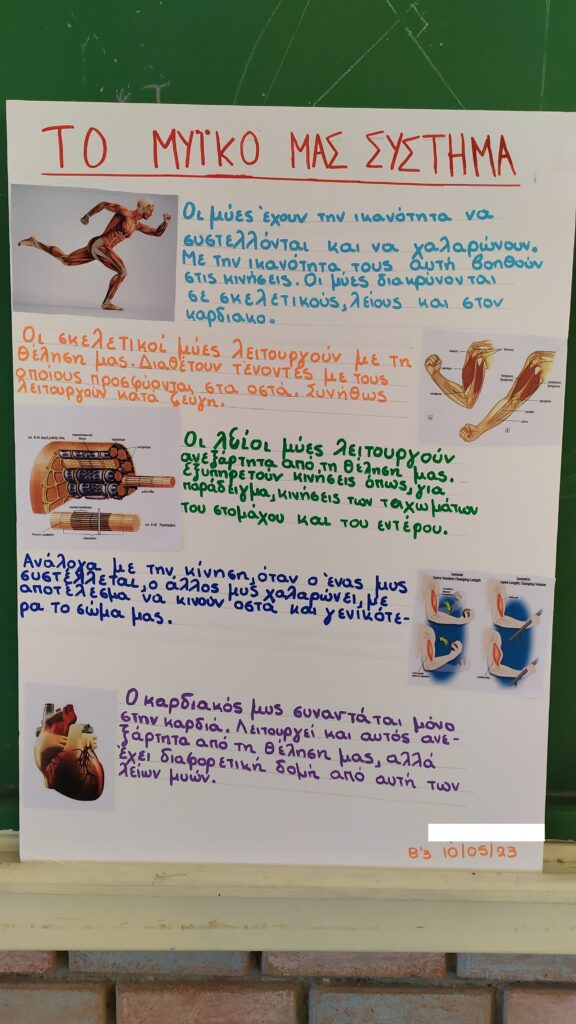 ΤΟ ΜΥΪΚΟ ΜΑΣ ΣΥΣΤΗΜΑ
Οι μύες έχουν την ικανότητα να
συστελλόνται και να χαλαρώνουν.
Με την ικανότητα τους αυτή βοηθούν
στις κινήσεις. Οι μύες διακρύνονται
σε σκελετικούς, λείους και στον
καρδιακο.
Οι σκελετικοί μύες λειτουργούν με τη
θέληση μας. Διαθέτουν τένοντες με τους
οποίους προσφύονται στα οστά. Συνήθως
λειτουργούν κατά ζεύγη.
Οι λείοι μύες λειτουργούν
ανεξάρτητα από τη θέληση μας.
Εξυπηρετούν κινήσεις όπως, για
παράδειγμα, κινήσεις των τοιχωμάτων
του στομάχου και του εντέρου.
Ανάλογα με την κίνηση, όταν ο ένας μυς
συστέλλεται, ο άλλος μυς χαλαρώνει, με
αποτέλεσμα να κινούν οστά και γενικότε-
ρα το σώμα μας.
Ο καρδιακός μυς συναντάται μόνο
στην καρδιά. Λειτουργεί και αυτός ανε-
ξάρτητα από τη θέληση μας, αλλά
έχει διαφορετική δομή από αυτή των
λείων μυών.
Β'3 10/05/23